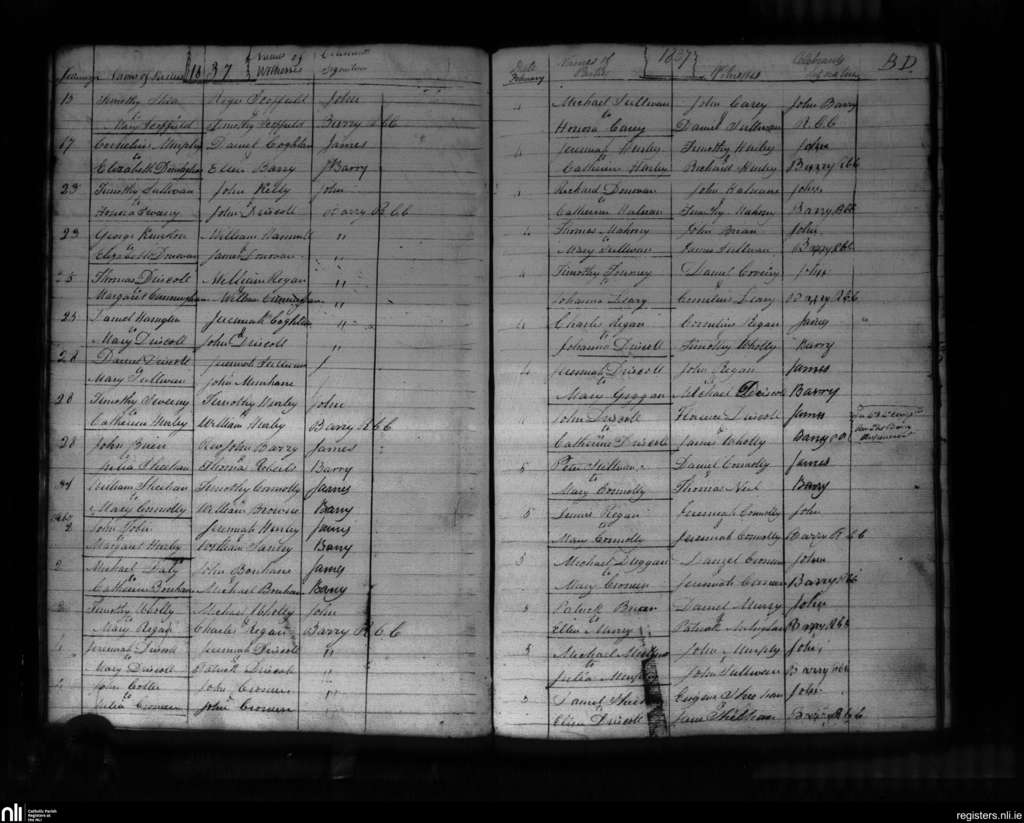 January Names of Parties 1837 Names of Witnesses Signature
13 Timothy Shea Roger Scoffield John
to
Mary Scoffield Timothy Scoffield Barry R C C
17 Cornelius Murphy Daniel Coghlan James
to
Elizabeth Donoghue Ellen Barry Barry
23 Timothy Sullivan John Keily John
to
Honora Sweeny John Driscoll Barry R C C
23 George Kingston William Hammill "
to
Elizabeth Donovan James Donovan "
25 Thomas Driscoll William Regan "
to
Margaret Cunningham William Cunningham "
25 Daniel Harington Jeremiah Coghlan "
to
Mary Driscoll John Driscoll "
28 Daniel Driscoll Jeremiah Sullivan
to
Mary Sullivan John Minihane
28 Timothy Sweeny Timothy Hurley John
to
Catherine Hurley William Hurley Barry R C C
28 John Brien Revd John Barry James
to
Julia Sheehan Thomas Roberts Barry
William Sheehan Timothy Connolly James
to
Mary Connolly William Browne Barry
2 John Jeremiah Hurley James
to
Margaret Hurley William Barry
2 Michael Daly John Bonhane James
to
Catherine Bonhane Michael Bonhane Barry
3 Timothy Wholly Michael Wholly John
to
Mary Regan Charles Regan Barry R C C
4 Jeremiah Driscoll Jeremiah Driscoll "
to
Mary Driscoll Patrick Driscoll "
John Cotter John Croneen "
to
Julia Croneen John Croneen "
Date February Names of Parties 1837 Witnesses Celebrants Signature B D.
4 Michael Sullivan John Carey John Barry
to
Honora Carey Daniel Sullivan R. C C
4 Jeremiah Hurley Timothy Hurley John
to
Catherine Hurley Richard Hurley Barry R C C
Richard Donovan John Halnane John
to
Catherine Halnan Timothy Mahony Barry R C C
4 Thomas Mahony John Brian John
to
Mary Sullivan James Sullivan Barry R C C
4 Timothy Daniel John
to
Johanna Leary Cornelius Leary Barry R C C
4 Charles Regan Cornelius Regan James "
to
Johanna Driscoll Timothy Wholly Barry
4 Jeremiah Driscoll John Regan James
to
Mary Geggan Michael Driscoll Barry
4 John Driscoll Florence Driscoll James
to
Catherine Driscoll James Wholly Barry
5 Peter Sullivan Daniel Connolly James
to
Mary Connolly Thomas Neil Barry
5 James Regan Jeremiah Connolly John
to
Mary Connolly Jeremiah Connolly Barry R C C
5 Michael Duggan Daniel Croneen John
to
Mary Croneen Jeremiah Croneen Barry R C C
5 Patrick Brien Daniel Murry John
to
Ellen Murry Patrick Barry R C C
5 Michael John Murphy John
to
Julia Murphy John Sullivan Barry R C C
5 Daniel Sheehan Eugene Sheehan John
to
Eliza Driscoll Jane Sheehan Barry R C C
nli Catholic Parish Registers at the NLI
registers.nli.ie